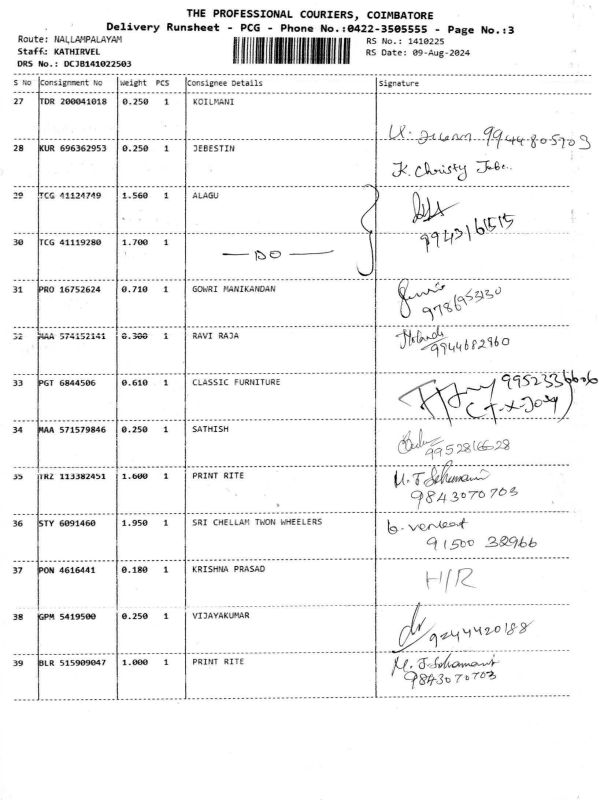 THE PROFESSIONAL COURIERS, COIMBATORE
Delivery Runsheet - PCG - Phone No.:0422-3505555 - Page No.:3
Route: NALLAMPALAYAM RS No.: 1410225
Staff: KATHIRVEL RS Date: 09-Aug-2024
DRS No.: DCJB141022503
S No Consignment No Weight PCS Consignee Details Signature
27 TDR 200041018 0.250 1 KOILMANI
9944805903
28 KUR 696362953 0.250 1 JEBESTIN K. Christy
29 TCG 41124749 1.560 1 ALAGU
9943161515
30 TCG 41119280 1.700 1 — DO —
31 PRO 16752624 0.710 1 GOWRI MANIKANDAN
9786953130
32 MAA 574152141 0.300 1 RAVI RAJA
9944682960
33 PGT 6844506 0.610 1 CLASSIC FURNITURE
34 MAA 571579846 0.250 1 SATHISH
35 TRZ 113382451 1.600 1 PRINT RITE
9843070703
36 STY 6091460 1.950 1 SRI CHELLAM TWON WHEELERS b. venkat
91500 38966
37 PON 4616441 0.180 1 KRISHNA PRASAD H/R
38 GPM 5419500 0.250 1 VIJAYAKUMAR
9244420188
39 BLR 515909047 1.000 1 PRINT RITE
9843070703